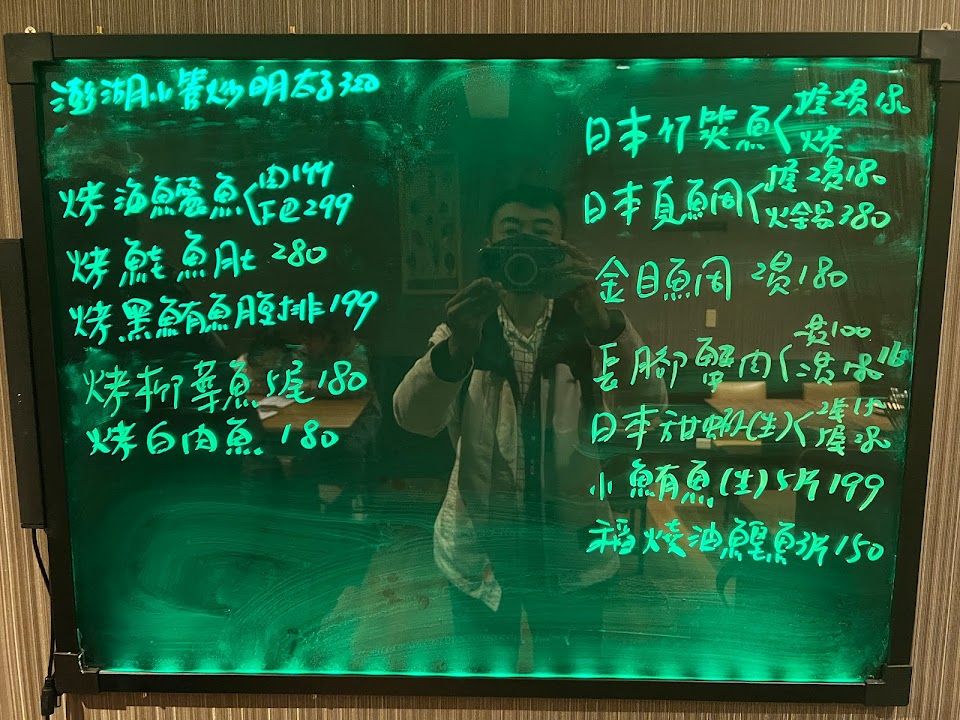 澎湖小管炒明太子320
烤海鱺魚
肉199
下巴299
烤鮭魚肚 280
烤黑鮪魚腹排199
烤柳葉魚5尾180
烤白肉魚 180
日本竹筴魚
握2貫
烤
日本真鯛
握2貫180
火鍋380
金目鯛 2貫180
長腳蟹肉
一貫100
日本甜蝦(生)
小鮪魚(生)5片199
稻燒油鰹魚3片150